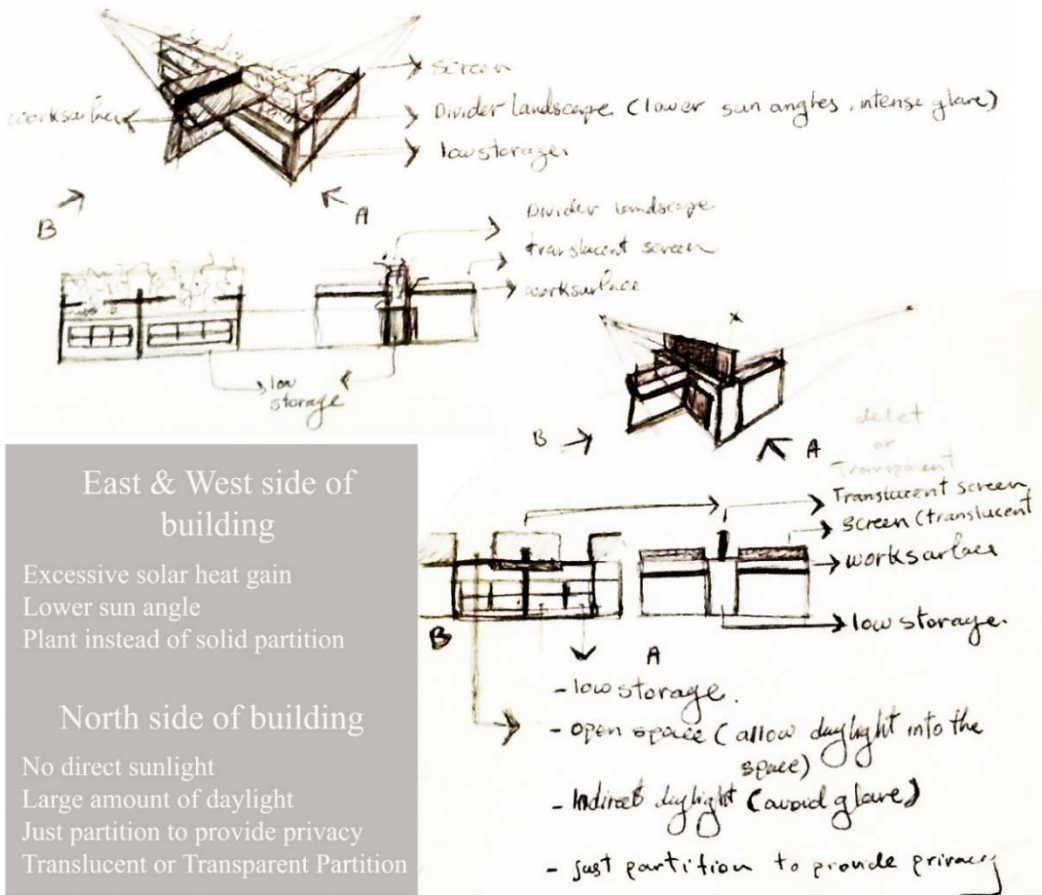 screen
worksurface
Divider landscape (lower sun angles, intense glare)
low storage
B
A
Divider landscape
translucent screen
worksurface
low
storage
B
A
delet
or
Transparent
Translucent screen
screen (translucent
worksurface
low storage.
B
A
- low storage.
- open space (allow daylight into the
space)
- Indirect daylight (avoid glare)
- just partition to provide privacy
East & West side of
building
Excessive solar heat gain
Lower sun angle
Plant instead of solid partition
North side of building
No direct sunlight
Large amount of daylight
Just partition to provide privacy
Translucent or Transparent Partition